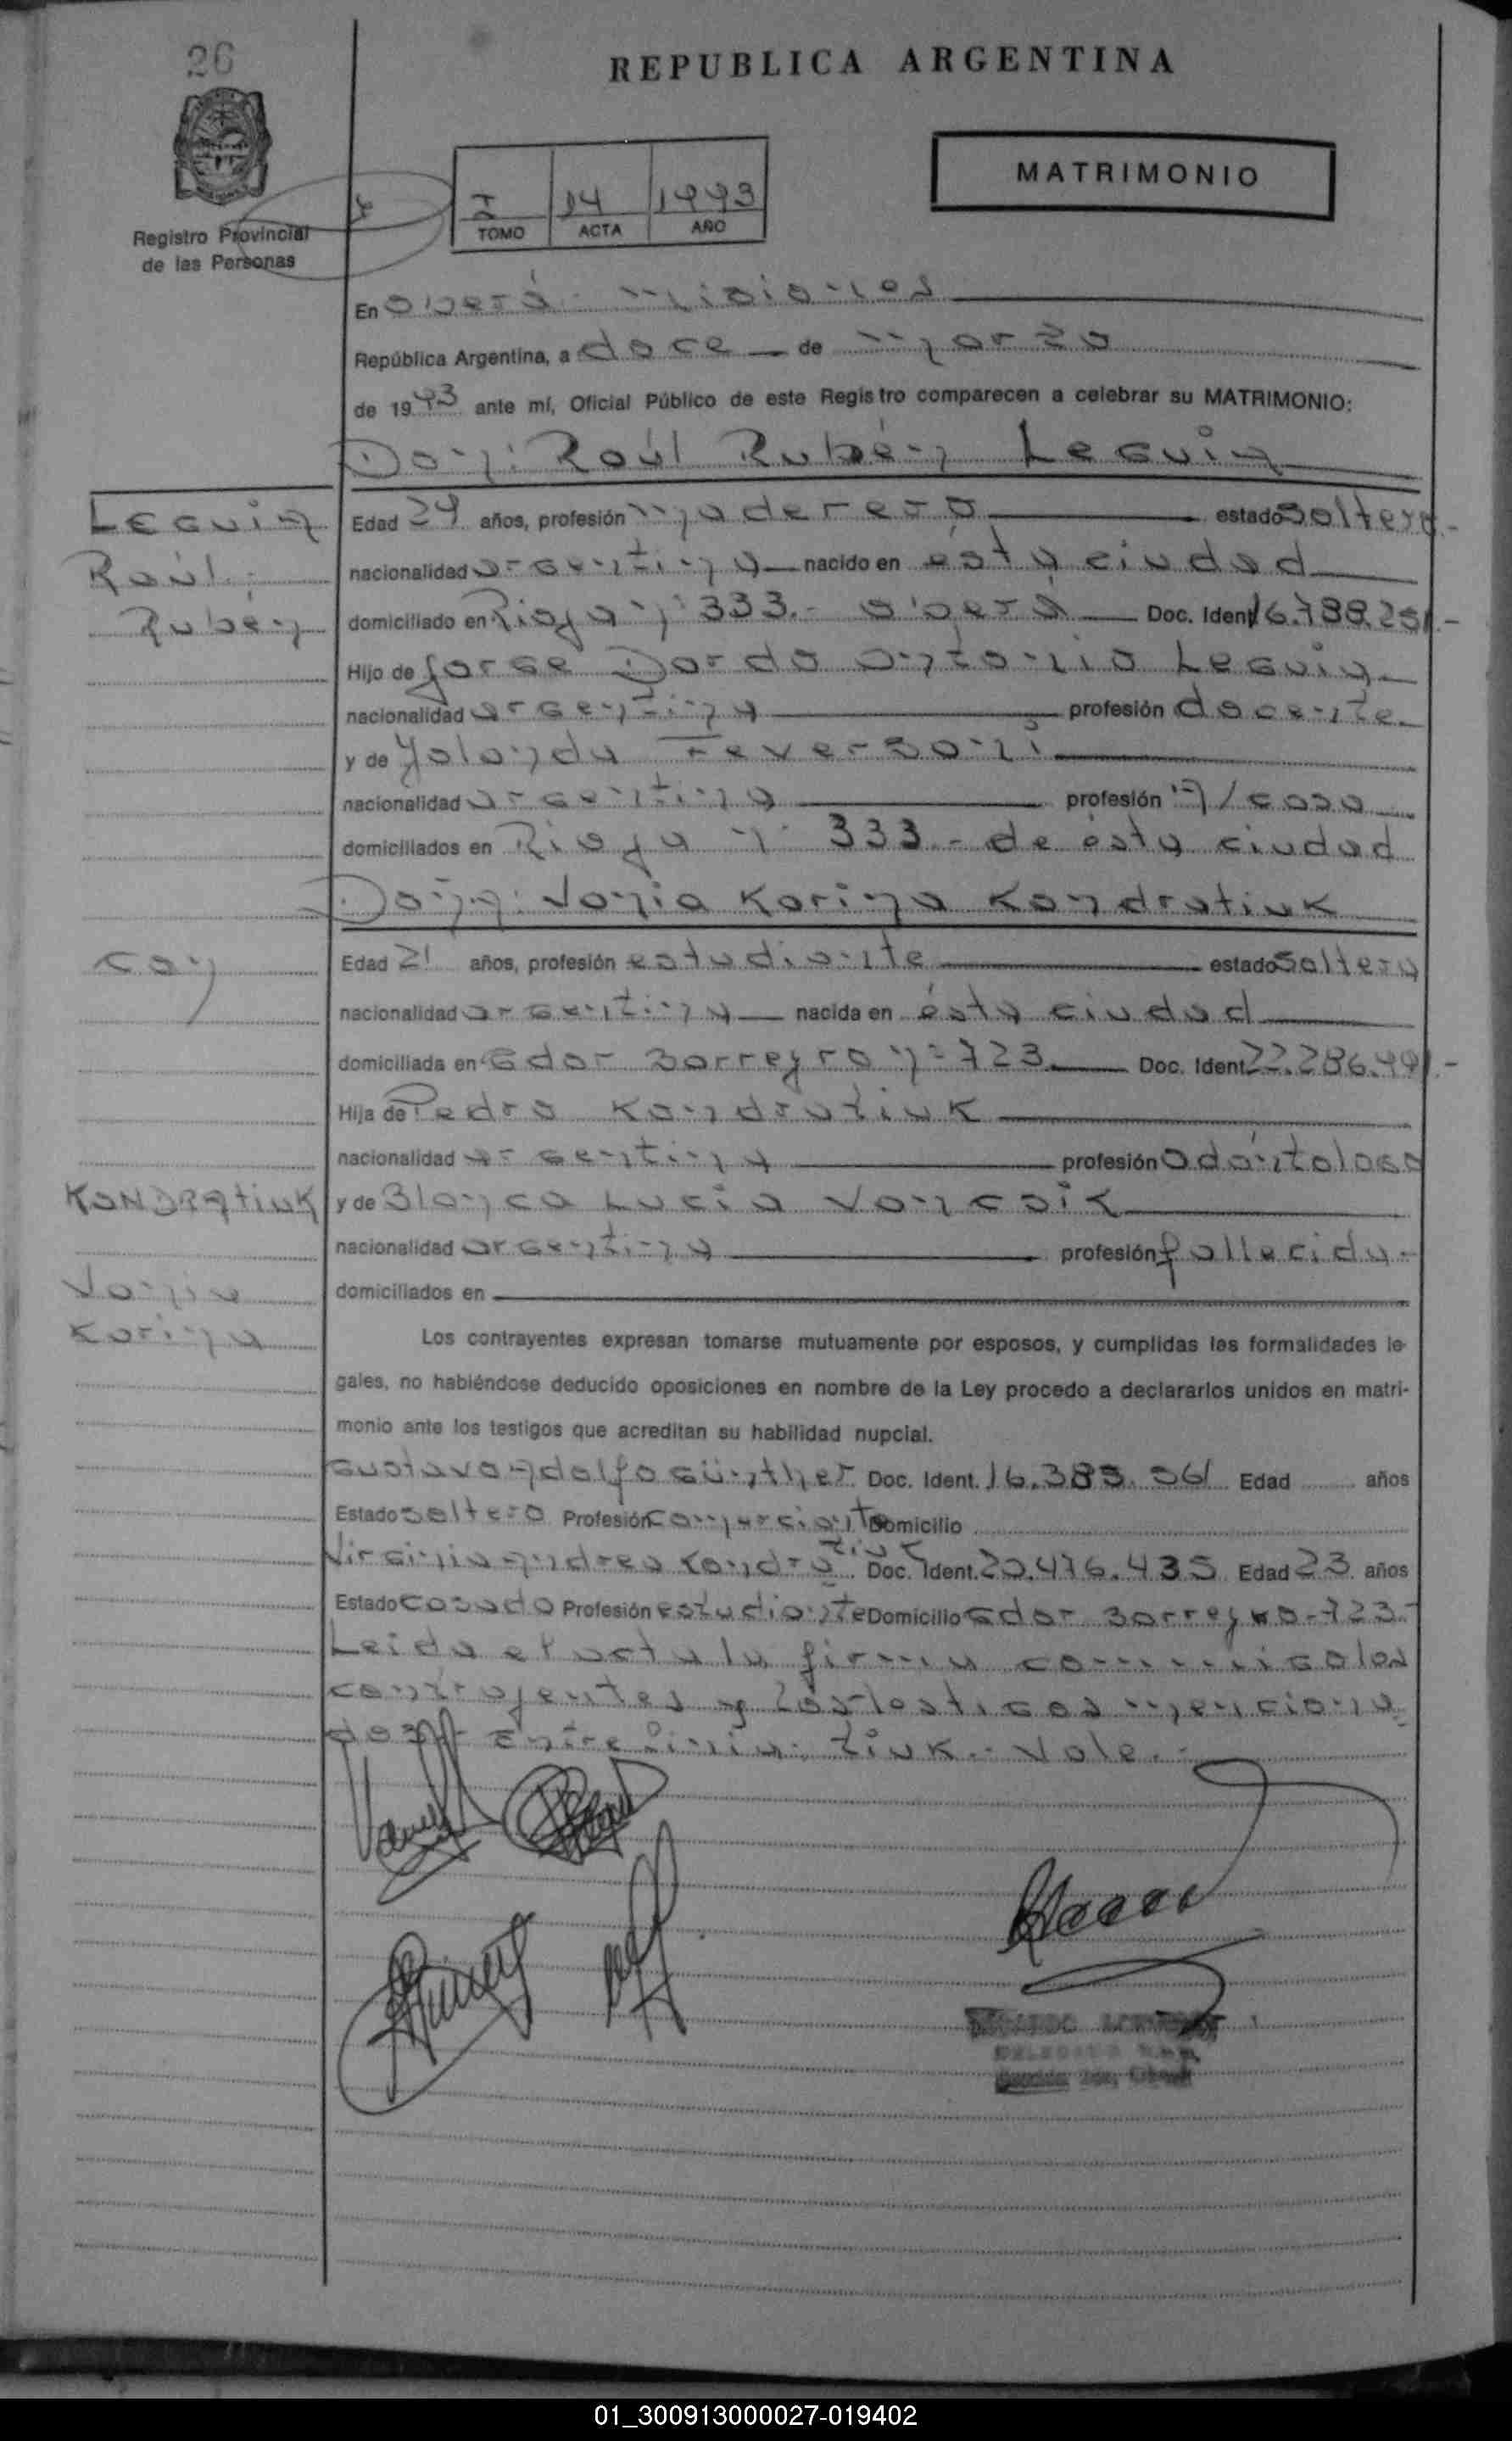 26
REPUBLICA ARGENTINA
MATRIMONIO
I 14 1993
TOMO ACTA AÑO
Registro Provincial
de las Personas
En Oberá - Misiones
República Argentina, a doce de Marzo
de 1993 ante mí, Oficial Público de este Registro comparecen a celebrar su MATRIMONIO:
Don: Raúl Rubén Leguia
Leguia
Raúl
Rubén
Edad 29 años, profesión Maderero estado Soltero.-
nacionalidad argentina nacido en ésta ciudad
domiciliado en Rioja Nº 333.- Oberá Doc. Ident 16.788.251.-
Hijo de Jorge Dardo Antonio Leguia
nacionalidad argentina profesión docente
y de Yolanda Feversani
nacionalidad argentina profesión A/casa
domiciliados en Rioja Nº 333.- de ésta ciudad
Doña: Vania Karina Kondratiuk
con
Edad 21 años, profesión estudiante estado Soltera
nacionalidad argentina nacida en ésta ciudad
domiciliada en Gdor Barreyro Nº 723 Doc. Ident 22.286.491.-
Hija de Pedro Kondratiuk
nacionalidad argentina profesión Odontologo
KONDRATIUK
y de Blanca Lucia
nacionalidad argentina profesión fallecida.-
Vania
Karina
domiciliados en
Los contrayentes expresan tomarse mutuamente por esposos, y cumplidas las formalidades le-
gales, no habiéndose deducido oposiciones en nombre de la Ley procedo a declararlos unidos en matri-
monio ante los testigos que acreditan su habilidad nupcial.
Gustavo Adolfo Günther Doc. Ident. 16.383.561 Edad años
Estado soltero Profesión Comerciante Domicilio
tiuk
Virginia Andrea Kondra Doc. Ident. 20.476.435 Edad 23 años
Estado casada Profesión estudiante Domicilio Gdor Barreyro-723-
Leida el acta la firman conmigo los
contrayentes y los testigos menciona
dos Entre linia: tiuk.- Vale.-
01_300913000027-019402